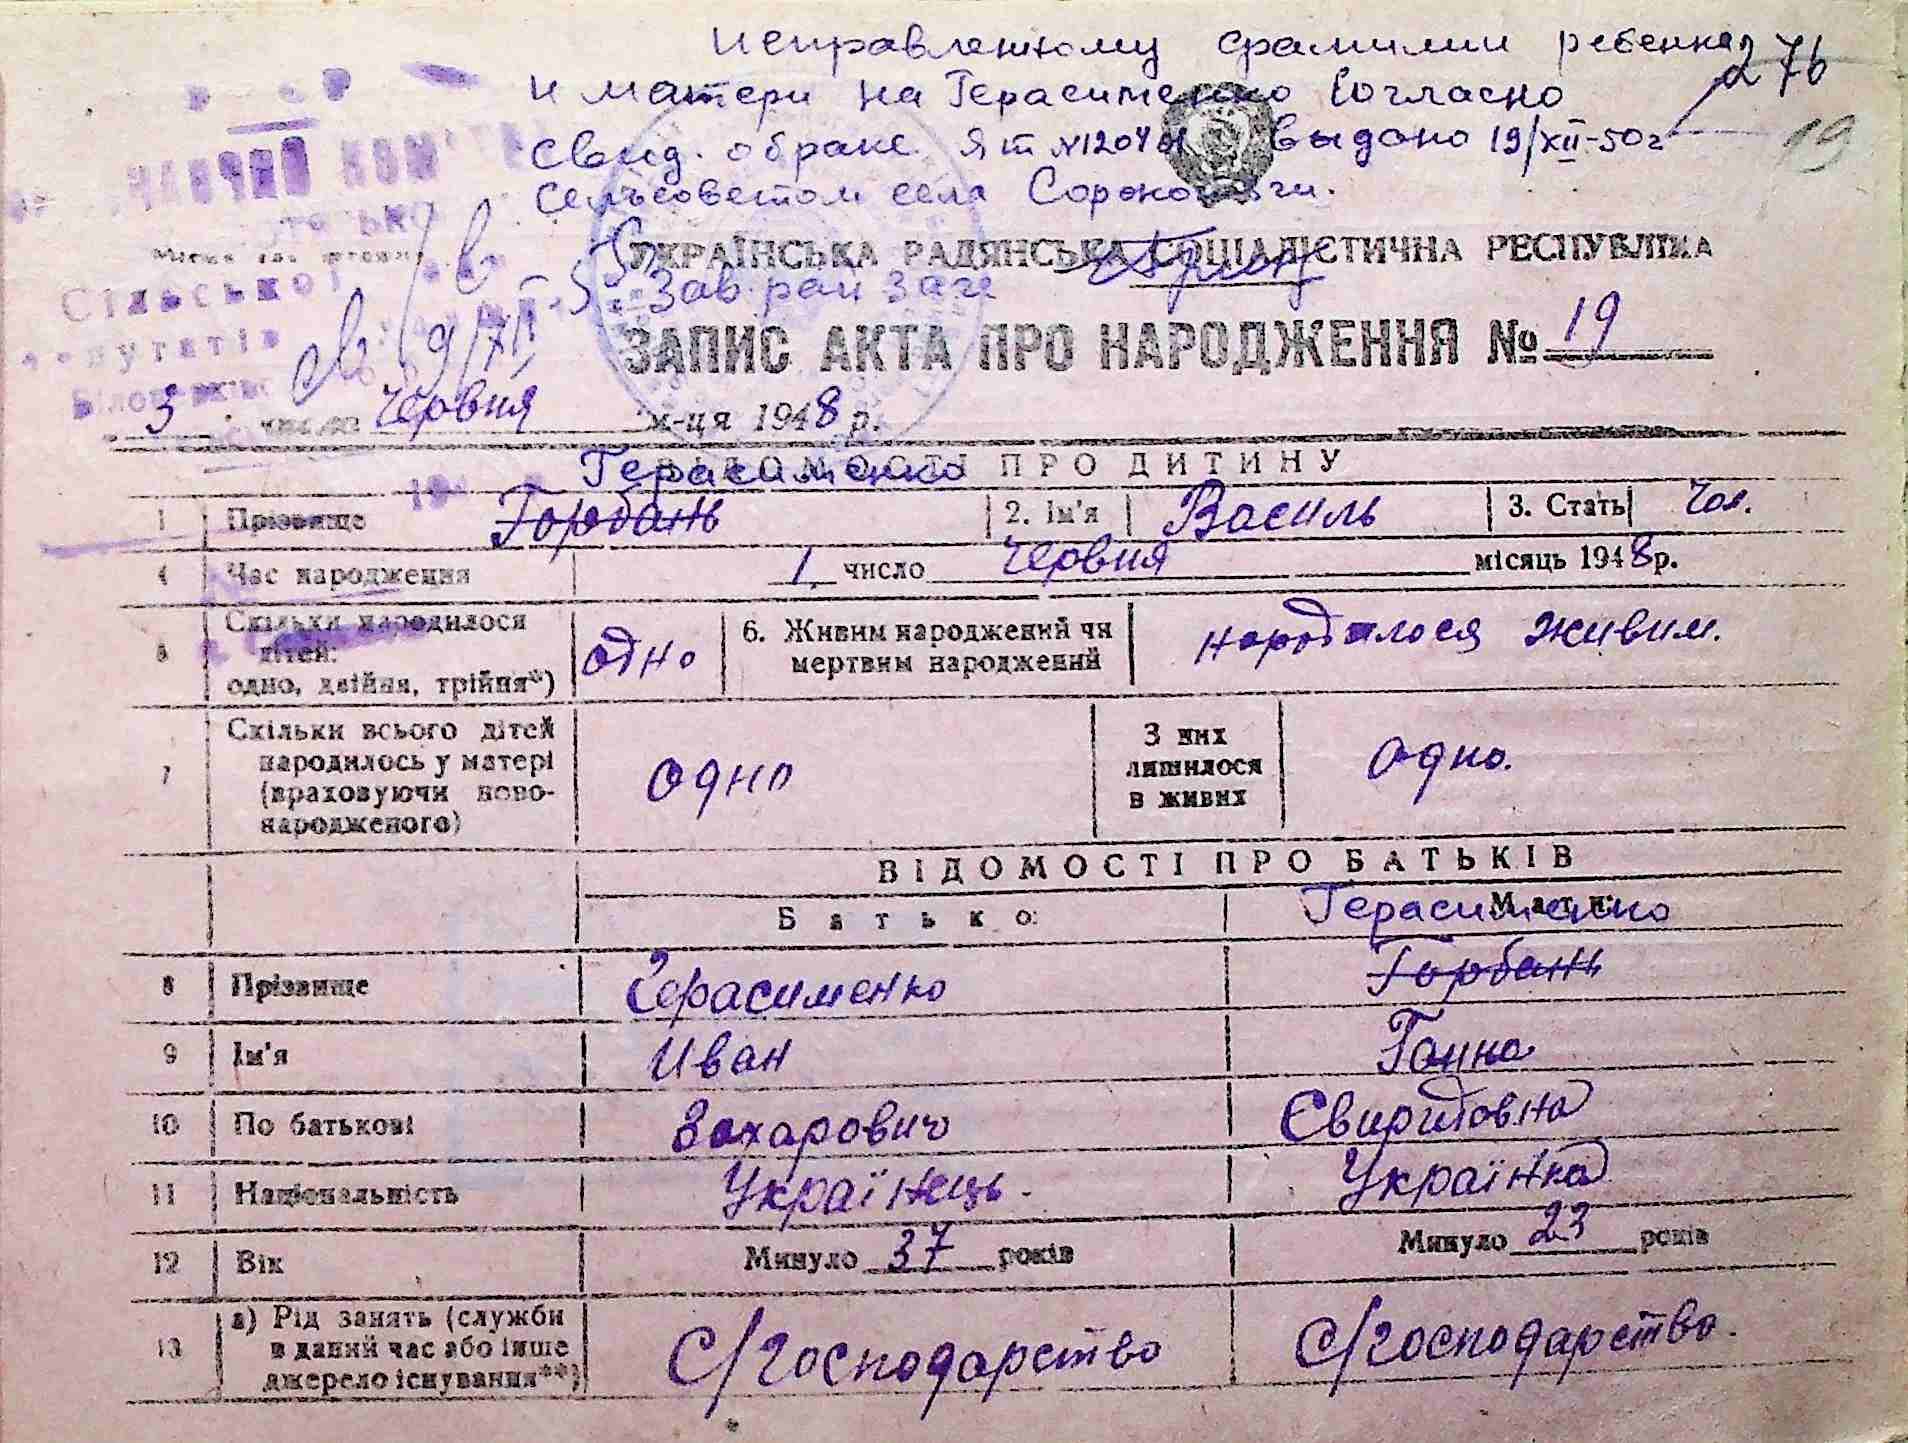 Исправленному фамилии ребенка 276
и матери на Герасименко Согласно 19
Свид. о браке Я т №120401 выдано 19/XII-50г
Сельсоветом села Сороко яги.
УКРАЇНСЬКА РАДЯНСЬКА СОЦІАЛІСТИЧНА РЕСПУБЛІКА
Сільської
Зав. рай загс
путатів
ЗАПИС АКТА ПРО НАРОДЖЕННЯ № 19
3 числа Червня м-ця 1948 р.
ВІДОМОСТІ ПРО ДИТИНУ
Герасименко
1 Прізвище Горбань 2. Ім'я Василь 3. Стать Чол.
4 Час народження 1. число Червня місяць 1948 р.
5 Скільки народилося дітей: одно, двійня, трійня*) одно 6. Живим народжений чи мертвим народжений народилося живим.
7 Скільки всього дітей народилось у матері (враховуючи новонародженого) одно З них лишилося в живих одно.
ВІДОМОСТІ ПРО БАТЬКІВ
Батько: Мати:
Герасименко
8 Прізвище Герасименко Горбань
9 Ім'я Иван Ганна
10 По батькові Захарович Євиридовна
11 Національність Українець. Українка
12 Вік Минуло 37 років Минуло 23 років
13 а) Рід занять (служби в даний час або інше джерело існування**) С/господарство С/господарство.